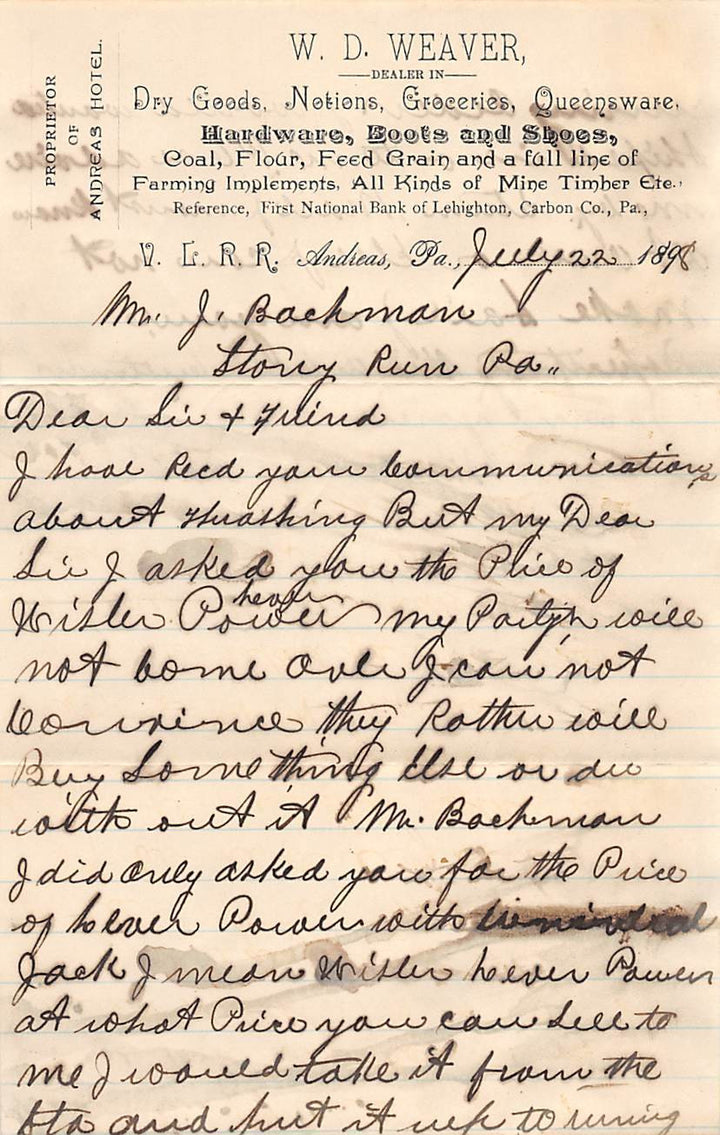 PROPRIETOR
OF
ANDREAS HOTEL.
W. D. WEAVER,
DEALER IN
Dry Goods, Notions, Groceries, Queensware,
Hardware, Boots and Shoes,
Coal, Flour, Feed Grain and a full line of
Farming Implements, All Kinds of Mine Timber Etc.,
Reference, First National Bank of Lehighton, Carbon Co., Pa.,
V. L. R. R. Andreas, Pa., July 22 1898
Mr. J. Bachman
Stony Run Pa,,
Dear Sir & Friend
I have Recd your Communications
about thrashing But my Dear
Sir I asked you the Price of
Wisler Power
lever
my Party will
not Come over I can not
Convince they Rather will
Buy Something Else or du
with out it Mr. Bachman
I did only asked you for the Price
of lever Power with
Jack I mean Wisler lever Power
at what Price you can Sell to
me I would take it from the
Sta and put it up to runing